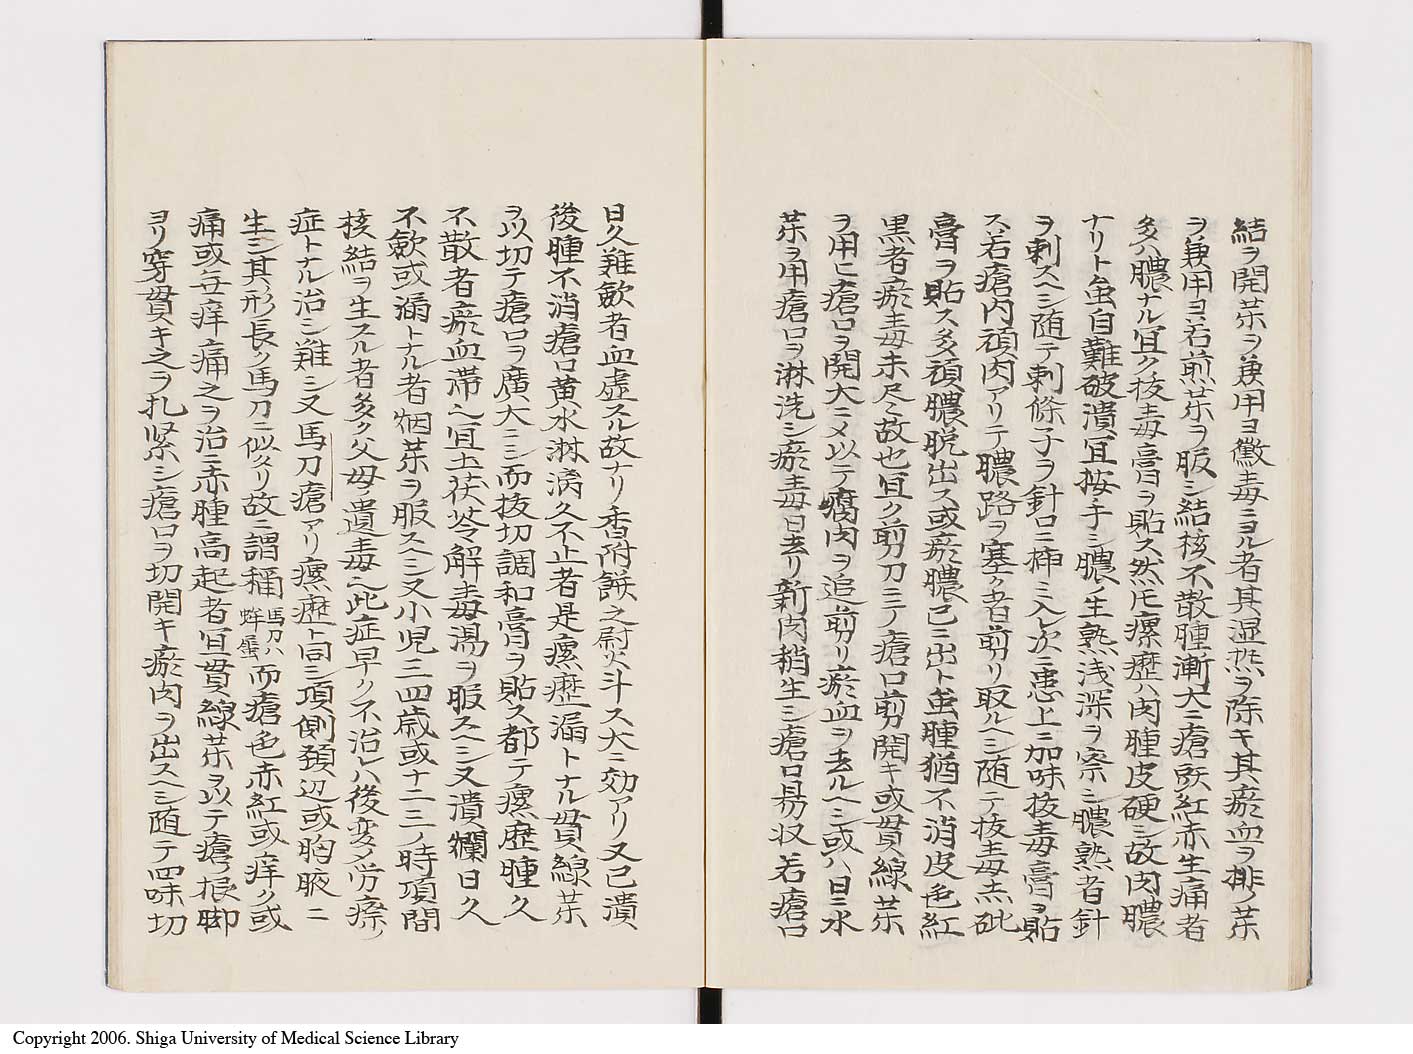 結ヲ開茶ヲ兼用ヨ黴毒ニヨル者其湿熱ヲ除キ其瘀血ヲ排ノ茶
ヲ兼用ヨ若煎茶ヲ服シ結核不散腫漸大ニ瘡既紅赤生痛者
多ハ膿ナル冝ク抜毒膏ヲ貼ス然𪜈瘰癧ハ肉腫皮硬シ故肉膿
ナリト虽自難破潰冝按手シ膿ノ生熟浅深ヲ察シ膿熟者針
ヲ刺スヘシ随テ刺條子ヲ針口ニ挿ミ入レ次ニ患上ニ加味抜毒膏ヲ貼
ス若瘡内頑肉アリテ膿路ヲ塞ク者剪リ取ルヘシ随テ抜毒
膏ヲ貼ス多頑膿脱出ス或瘀膿已ニ出ト虽腫猶不消皮色紅
黒者瘀毒未尽故也冝ク剪刀ニテ瘡口剪開キ或貫線茶
ヲ用ヒ瘡口ヲ開大ニメ以テ腐肉ヲ追剪リ瘀血ヲ去ルヘシ或ハ日ニ水
茶ヲ用瘡口ヲ淋洗シ瘀毒日去リ新肉稍生シ瘡口易収若瘡口
日久難歛者血虚スル故ナリ香附餅之尉火斗ス大ニ効アリ又已潰
後腫不消瘡口黄水淋漓久不止者是瘰癧漏トナル貫線茶
ヲ以切テ瘡口ヲ廣大ニシ而抜切調和膏ヲ貼ス都テ瘰癧腫久
不散者瘀血滞也冝土茯苓解毒湯ヲ服スヘシ又潰爛日久
不歛或漏トナル者烟茶ヲ服スヘシ又小児三四歳或十二三ノ時項間
核結ヲ生スル者多ク父母ノ遺毒也此症早ク不治レハ後変メ労瘵ノ
症トナル治シ難シ又馬刀瘡アリ瘰癧ト同シ項側頚辺或胸腋ニ
生シ其形長ク馬刀ニ似タリ故ニ謂稱馬刀ハ蛑蠯而瘡色赤紅或痒ク或
痛或無痒痛之ヲ治ニ赤腫高起者冝貫線茶ヲ以テ瘡ノ根脚
ヨリ穿貫キ之ヲ扎緊シ瘡口ヲ切開キ瘀肉ヲ出スヘシ随テ四味切
Copyright 2006. Shiga University of Medical Science Library